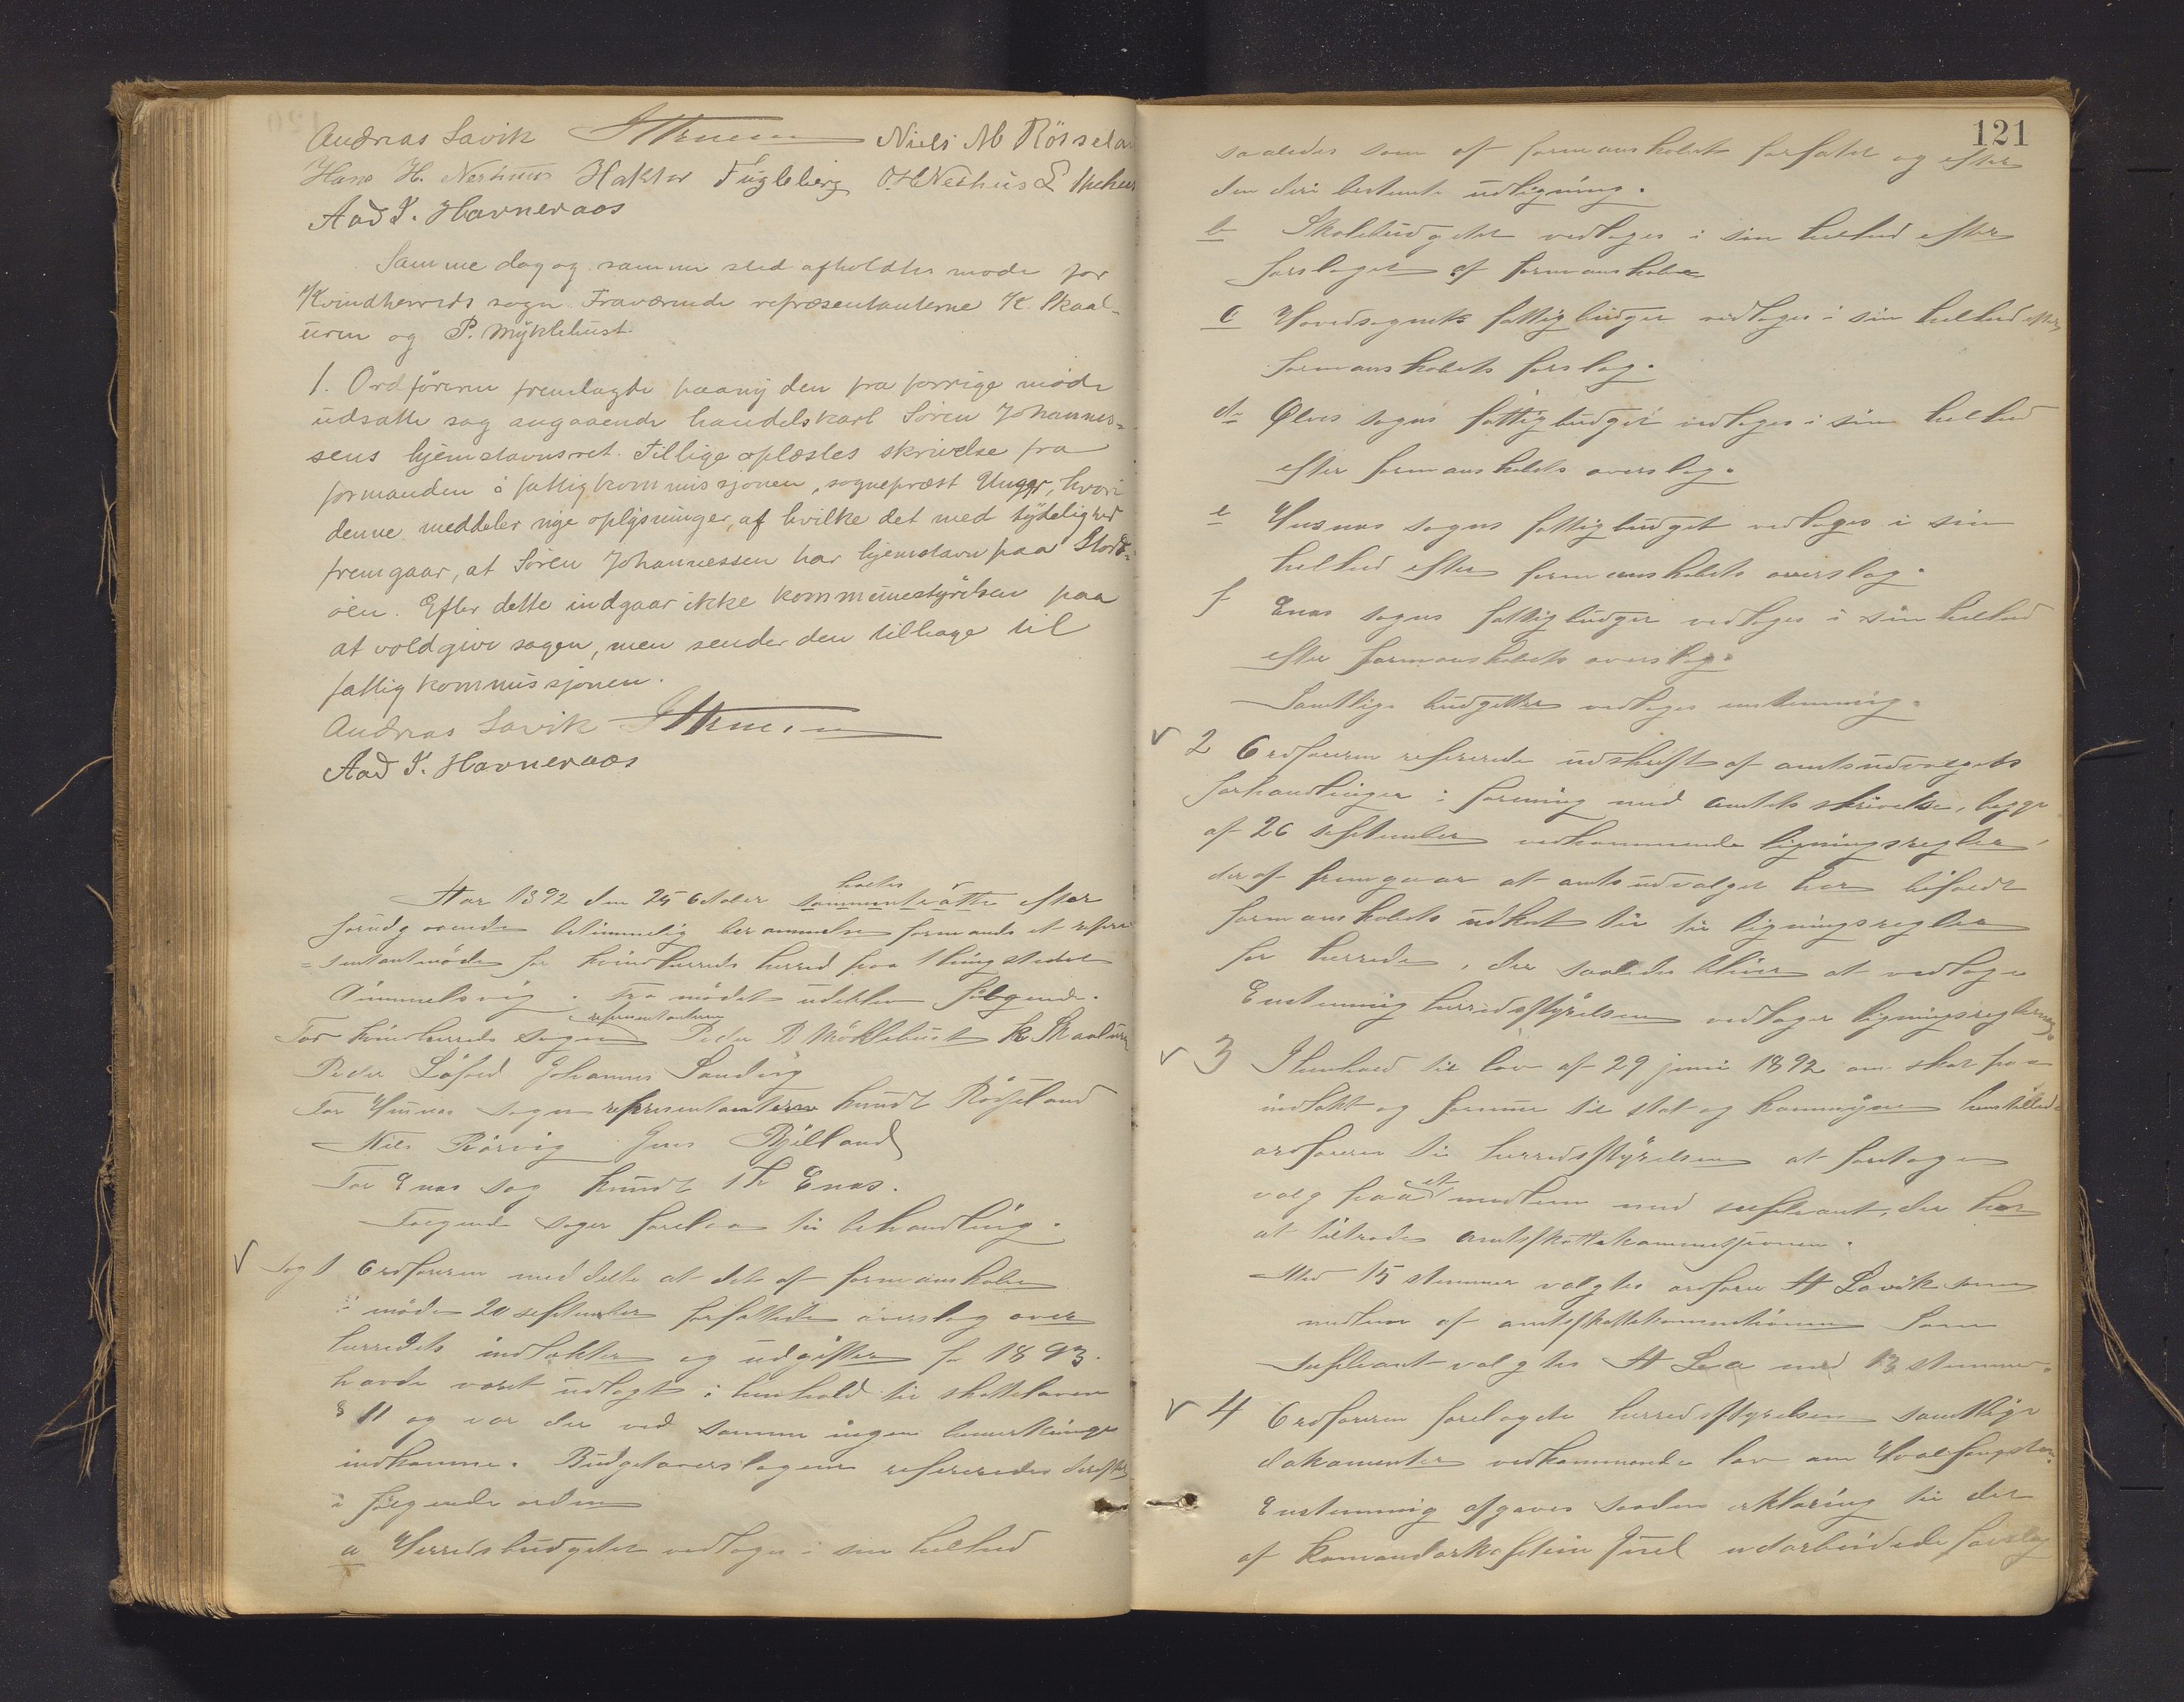 Andreas Lavik Niels M Rösselan
Hans H. Nerhuus Haktor Fugleberg O. H. Nerhus L
Aad I. Havneraas
Samme dag og samme sted afholdtes møde for
Kvindherreds sogn. Fraværende repræsentanterne K. Skaal-
uren og P. Myklebust.
1. Ordföreren fremlagde paany den fra forrige møde
udsatte sag angaaende handelskarl Sören Johannes-
sens hjemstavnsret. Tillige oplæstes skrivelse fra
formanden i fattigkommissjonen, sogneprest Unger, hvori
denne meddeler nye oplysninger, af hvilke det med tydelighed
fremgaar, at Sören Johannessen har hjemstavn paa Stord-
öen. Efter dette indgaar ikke kommunestyrelsen paa
at voldgive sagen, men sender den tilbage til
fattigkommissjonen.
Andreas Lavik
Aad I. Havneraas
Aar 1892 den 25 October holtes sammentraatte efter
forudgaaende betimmelig berammelse formands et repre
=sentantmöde for Kvindherreds herred paa thingstedet
Gimmelsvig. Fra mödet udeblev følgende.
For Kvindherreds Sogn representanterne Peder P Möklebust K Skaaluren
Peder Löfald Johannes Sandvig
For Husnes Sogn representanterne Knudt Rösseland
Nils Rörvig Jens Bjelland
For Enes Sog Knudt Th Enes.
Følgende sager forelaa til behandling.
Sag 1 Ordføreren meddelte at det af formanskabet
i möde 20 september forfattede overslag over
herredets indtækter og udgifter for 1893.
havde været udlagt i henhold til skatteloven
§ 11 og var der ved samme ingen bemerkninger
indkomne. Budgetoverslagene refereredes derefter
i følgende orden
a Herredsbudgetet vedtages i sin helhed
121
saaledes som af formanskabet forfatet og efter
den deri bestemte udligning.
b Skolebudgetet vedtages i sin helhed efter
forslaget af formanskabet
c Hovedsognets fattigbudget vedtages i sin helhed efter
formanskabets forslag.
d Ølves sogns fattigbudget vedtages i sin helhed
efter formanskabets overslag.
e Husnes sogns fattigbudget vedtages i sin
helhed efter formanskabets overslag.
f Enes sogns fattigbudget vedtages i sin helhed
efter formanskabets overslag.
Samtlige budgetter vedtages enstemmig.
2 Ordføreren refererede udskrift af amtsudvalgets
forhandlinger i forening med amtets skrivelse, begge
af 26 september vedkommende ligningsregler,
deraf fremgaar at amtsudvalget har bifaldt
formanskabets udkast til ligningsregler
for herredet, der saaledes bliver at vedtage
Enstemmig herredsstyrelsen vedtager ligningsreglerne.
3 I henhold til lov af 29 juni 1892 om skat paa
indtækt og formue til stat og kommune henstillede
ordføreren til herredsstyrelsen at foretage
valg paa et medlem med supleant, der har
at tiltræde amtsskattekommissionen.
Med 15 stemmer valgtes ordfører A Lavik som
medlem af amtsskattekommissionen Som
Supleant valgtes A Lea med 13 stemmer.
4 Ordføreren forelagde herredsstyrelsen samtlige
dokumenter vedkommende lov om Hvalfangsten.
Enstemmig afgaves saadan erklæring til det
af Komandørkaptein Juel udarbeidede forslag